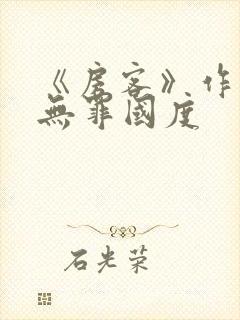 《房客》作
無罪國度
石光荣